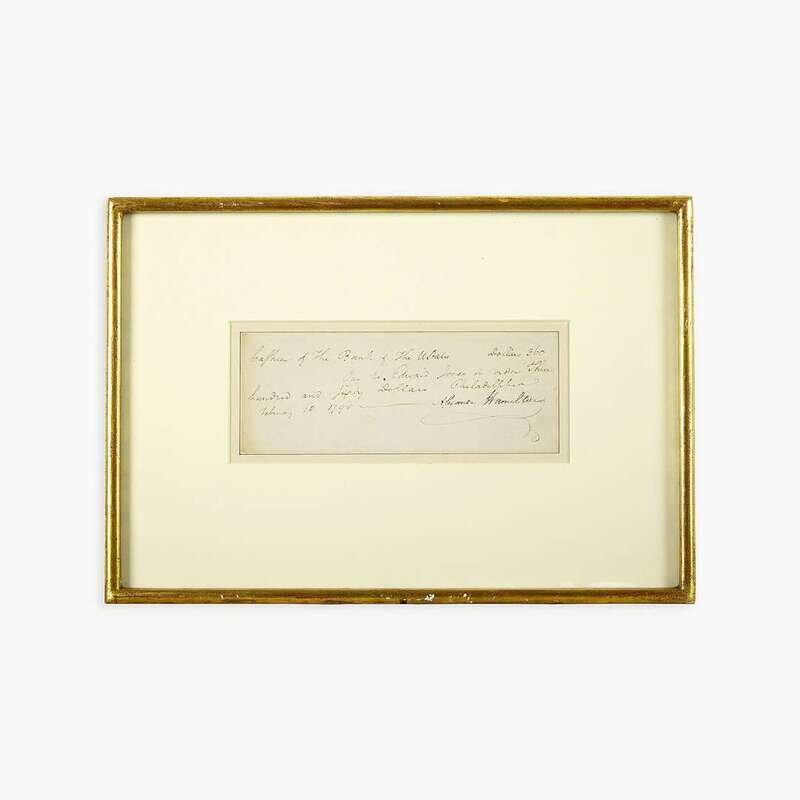 Cashier of The Bank of The UStates Dollars 360
Pay to Edward Jones or order Three
hundred and sixty Dollars Philadelphia
February 10 1795 Alexander Hamilton